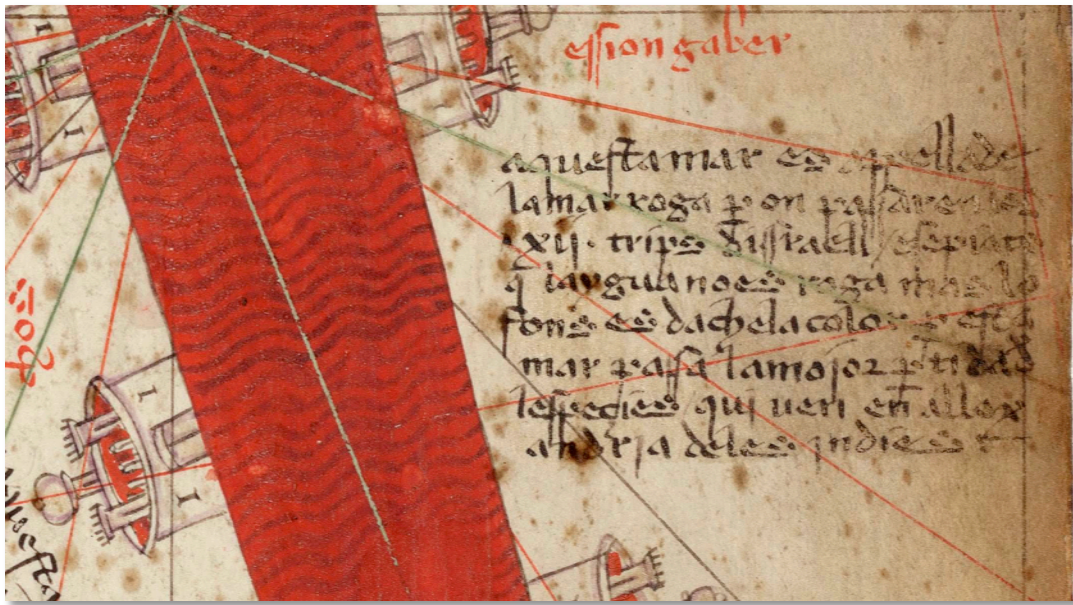 ession gaber
aquesta mar es apellade
la mar roga p on pasaren les
xij· trips disrraell e sepiats
q laygua no es roga mas lo
fons es dachela color p esta
mar passa la mojor ptida d
lespecies qui ven en allex
andria deles indies
gos
questa